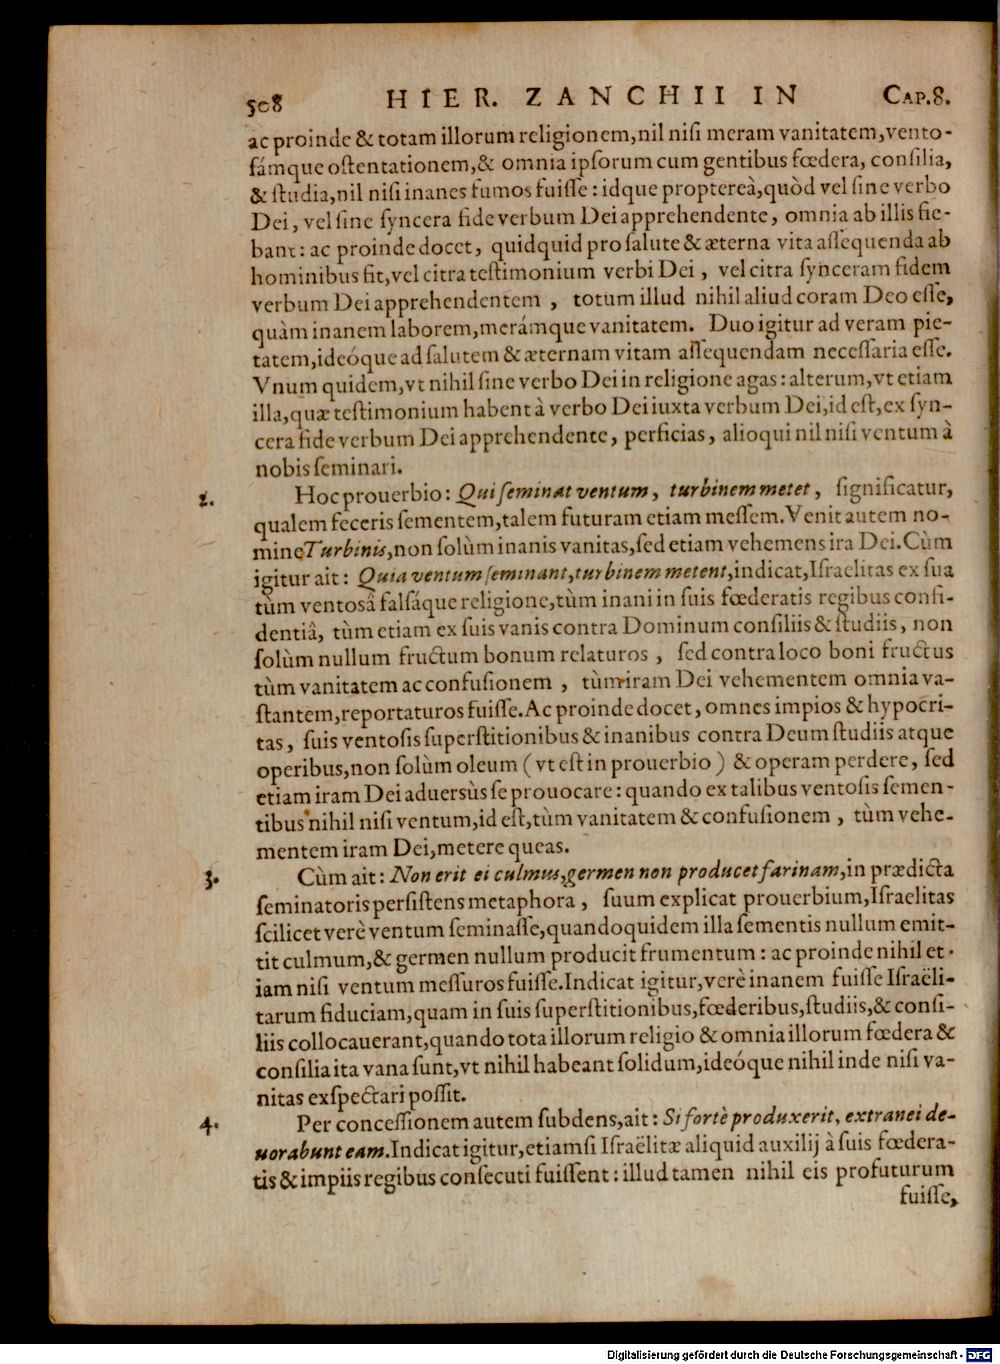 508 HIER. ZANCHII IN CAP.8.
ac proinde & totam illorum religionem, nil niſi meram vanitatem, vento-
ſámque oſtentationem, & omnia ipſorum cum gentibus fœdera, conſilia,
& ſtudia, nil niſi inanes fumos fuiſſe: idque proptereà, quòd vel ſine verbo
Dei, vel ſine ſyncera fide verbum Dei apprehendente, omnia ab illis fie-
bant: ac proinde docet, quidquid pro ſalute & æterna vita aſſequenda ab
hominibus fit, vel citra teſtimonium verbi Dei, vel citra ſynceram fidem
verbum Dei apprehendentem, totum illud nihil aliud coram Deo eſſe,
quàm inanem laborem, merámque vanitatem. Duo igitur ad veram pie-
tatem, ideóque ad ſalutem & æternam vitam aſſequendam neceſſaria eſſe.
Vnum quidem, vt nihil ſine verbo Dei in religione agas: alterum, vt etiam
illa, quæ teſtimonium habent à verbo Dei iuxta verbum Dei, id eſt, ex ſyn-
cera fide verbum Dei apprehendente, perficias, alioqui nil niſi ventum à
nobis ſeminari.
2. Hoc prouerbio: Qui ſeminat ventum, turbinem metet, ſignificatur,
qualem feceris ſementem, talem futuram etiam meſſem. Venit autem no-
mine Turbinis, non ſolùm inanis vanitas, ſed etiam vehemens ira Dei. Cùm
igitur ait: Quia ventum ſeminant, turbinem metent, indicat, Iſraelitas ex ſua
tùm ventoſâ falſáque religione, tùm inani in ſuis fœderatis regibus confi-
dentiâ, tùm etiam ex ſuis vanis contra Dominum conſiliis & ſtudiis, non
ſolùm nullum fructum bonum relaturos, ſed contra loco boni fructus
tùm vanitatem ac confuſionem, tùm iram Dei vehementem omnia va-
ſtantem, reportaturos fuiſſe. Ac proinde docet, omnes impios & hypocri-
tas, ſuis ventoſis ſuperſtitionibus & inanibus contra Deum ſtudiis atque
operibus, non ſolùm oleum (vt eſt in prouerbio) & operam perdere, ſed
etiam iram Dei aduersùs ſe prouocare: quando ex talibus ventoſis ſemen-
tibus nihil niſi ventum, id eſt, tùm vanitatem & confuſionem, tùm vehe-
mentem iram Dei, metere queas.
3. Cùm ait: Non erit ei culmus, germen non producet farinam, in prædicta
ſeminatoris perſiſtens metaphora, ſuum explicat prouerbium, Iſraelitas
ſcilicet verè ventum ſeminaſſe, quandoquidem illa ſementis nullum emit-
tit culmum, & germen nullum producit frumentum: ac proinde nihil et-
iam niſi ventum meſſuros fuiſſe. Indicat igitur, verè inanem fuiſſe Iſraëli-
tarum fiduciam, quam in ſuis ſuperſtitionibus, fœderibus, ſtudiis, & conſi-
liis collocauerant, quando tota illorum religio & omnia illorum fœdera &
conſilia ita vana ſunt, vt nihil habeant ſolidum, ideóque nihil inde niſi va-
nitas exſpectari poſſit.
4. Per conceſſionem autem ſubdens, ait: Si fortè produxerit, extranei de-
uorabunt eam. Indicat igitur, etiamſi Iſraëlitæ aliquid auxilij à ſuis fœdera-
tis & impiis regibus conſecuti fuiſſent: illud tamen nihil eis profuturum
fuiſſe,
Digitalisierung gefördert durch die Deutsche Forschungsgemeinschaft - DFG